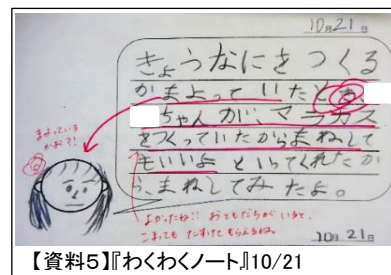 10月21日
きょうなにをつくる
かまよっていたとき、
ちゃんが、マラカス
をつくっていたからまねして
もいいよといってくれたか
ら、まねしてみたよ。
まよっている
かお?!
よかったね!!おともだちがいると、
こまってもたすけてもらえるね。
10月21日
【資料5】『わくわくノート』10/21